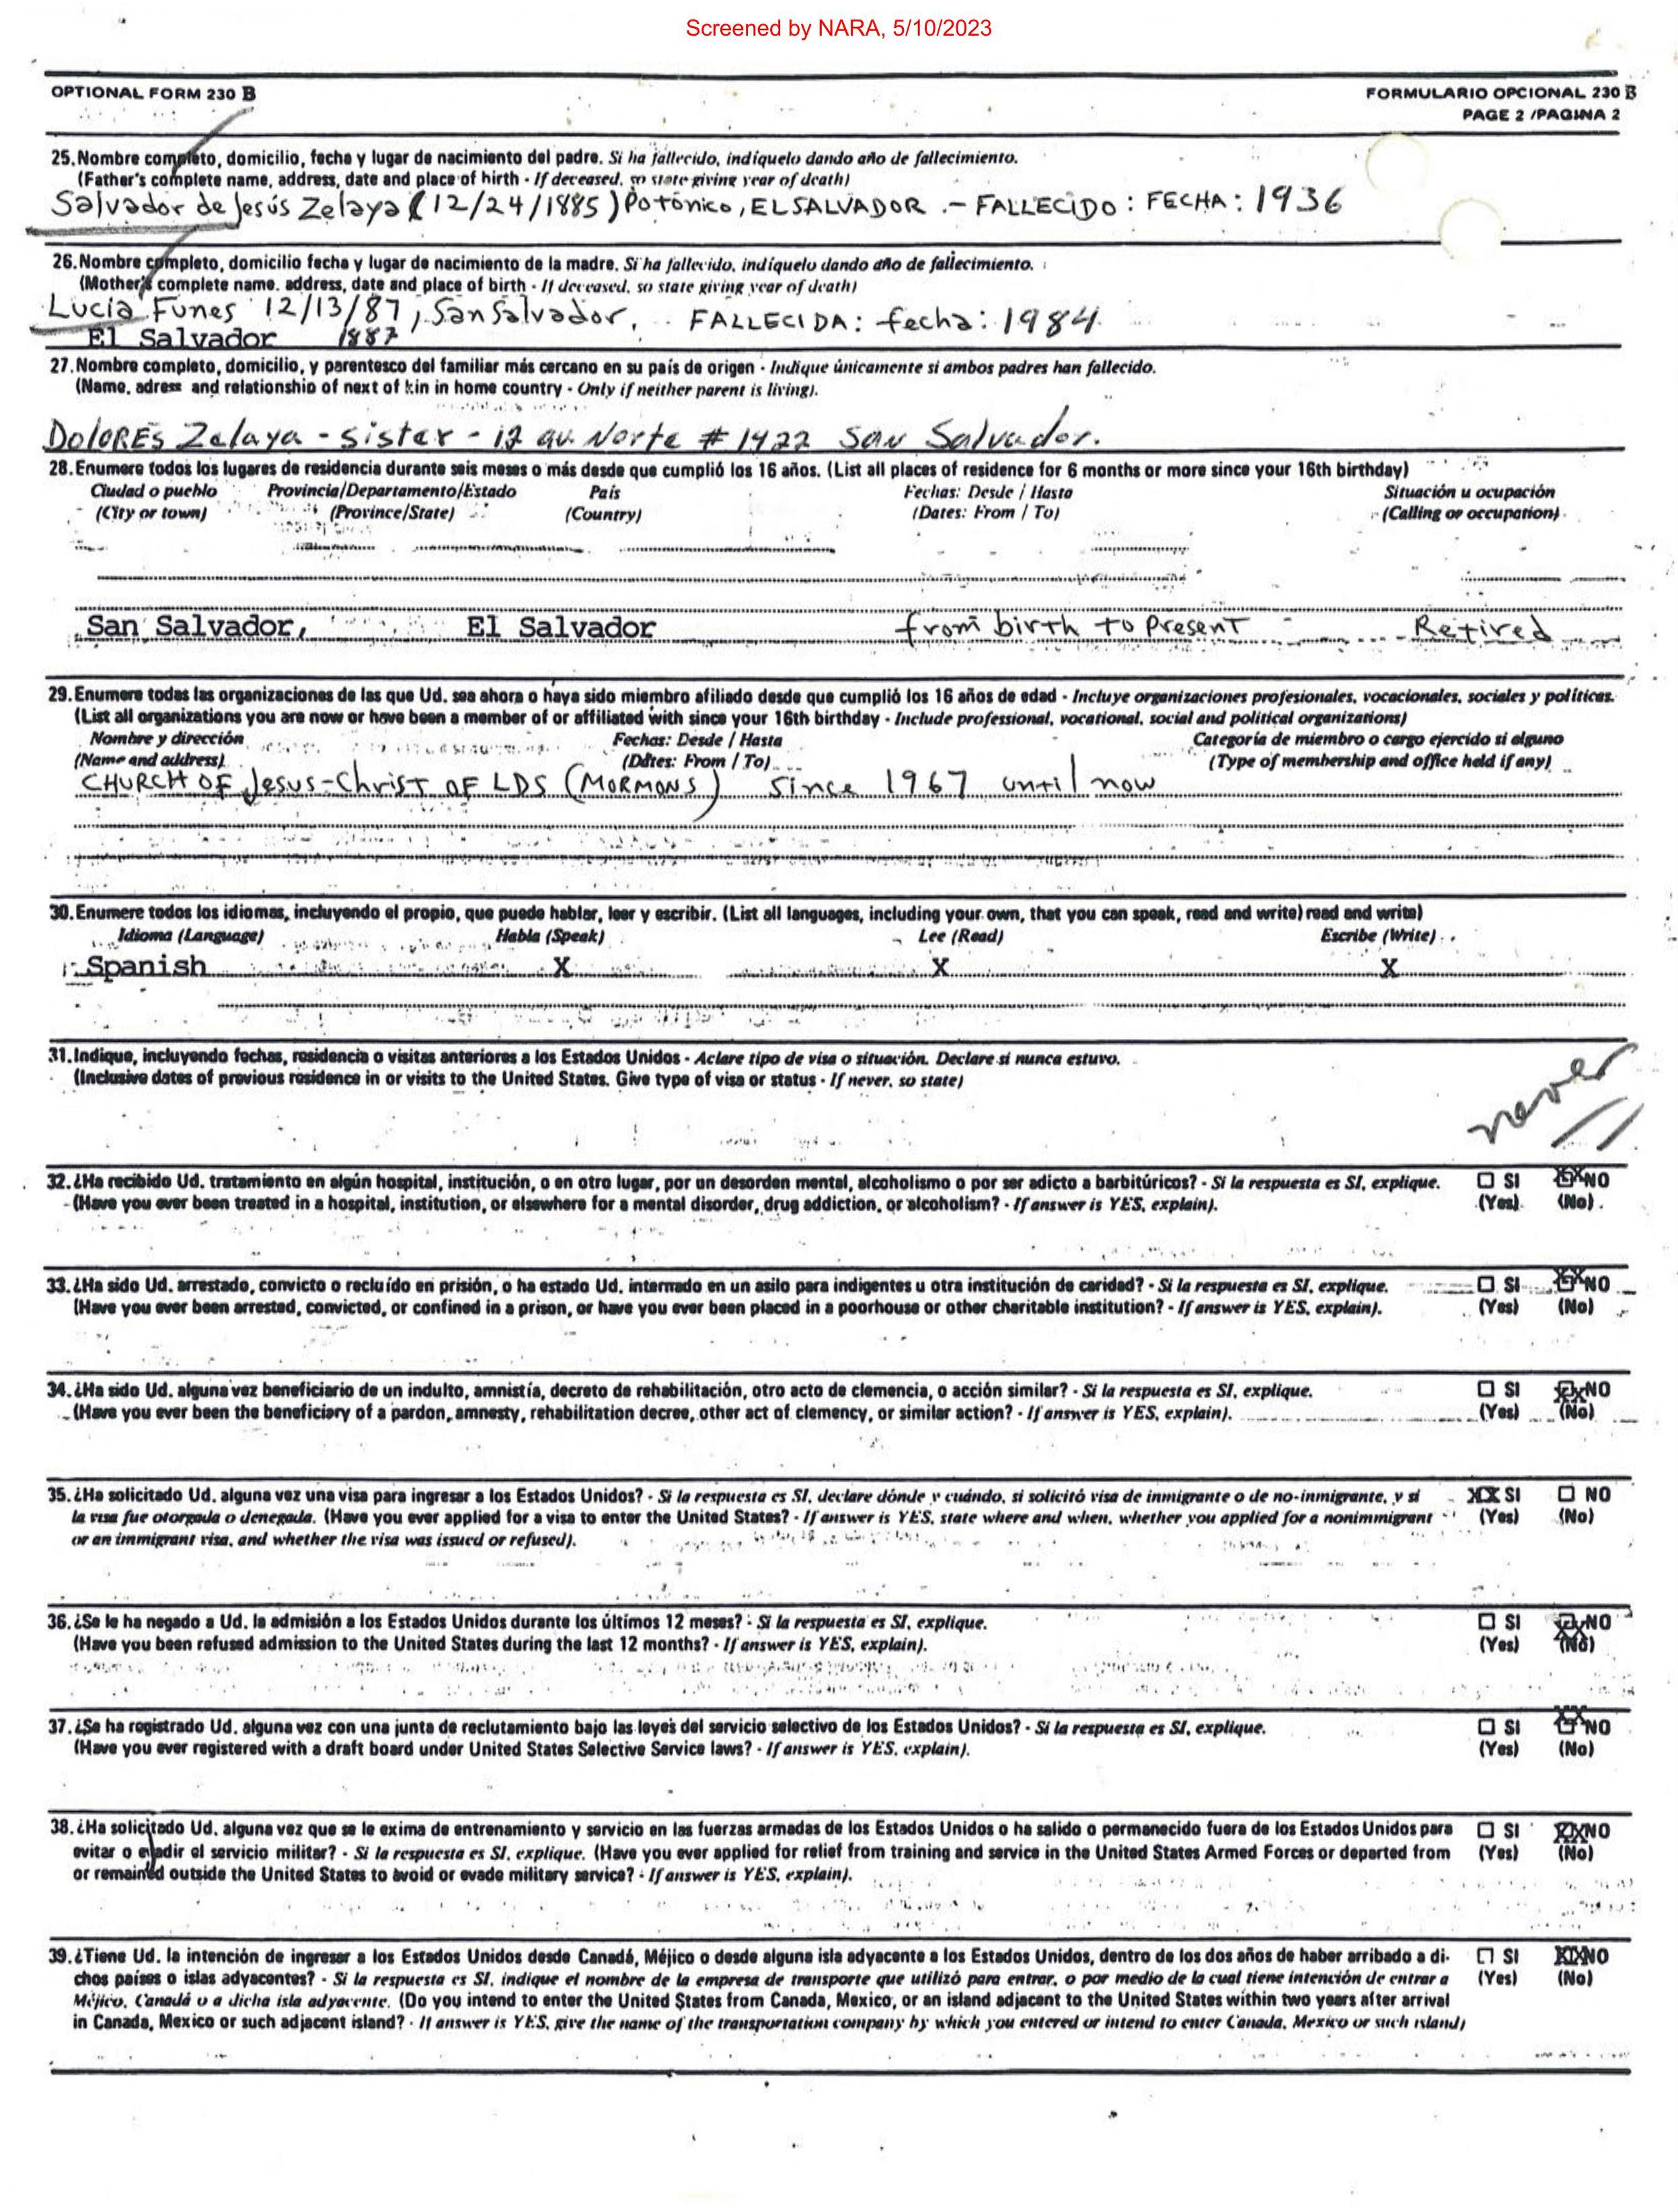 Screened by NARA, 5/10/2023
OPTIONAL FORM 230 B
FORMULARIO OPCIONAL 230 B
PAGE 2 /PAGINA 2
25. Nombre completo, domicilio, fecha y lugar de nacimiento del padre. Si ha fallecido, indíquelo dando año de fallecimiento.
(Father's complete name, address, date and place of birth - If deceased, so state giving year of death)
Salvador de Jesús Zelaya (12/24/1885) Potonico, EL SALVADOR .- FALLECIDO : FECHA: 1936
26. Nombre completo, domicilio fecha y lugar de nacimiento de la madre. Si ha fallecido, indíquelo dando año de fallecimiento.
(Mother's complete name. address, date and place of birth - If deceased, so state giving year of death)
Lucia Funes 12/13/87, San Salvador, FALLECIDA: fecha: 1984
El Salvador 1887
27. Nombre completo, domicilio, y parentesco del familiar más cercano en su país de origen - Indique únicamente si ambos padres han fallecido.
(Name, adress and relationship of next of kin in home country - Only if neither parent is living).
DOLORES Zelaya - sister - 12 av. Norte # 1422 San Salvador.
28. Enumere todos los lugares de residencia durante seis meses o más desde que cumplió los 16 años. (List all places of residence for 6 months or more since your 16th birthday)
Ciudad o pueblo Provincia/Departamento/Estado País Fechas: Desde / Hasta Situación u ocupación
(City or town) (Province/State) (Country) (Dates: From / To) (Calling or occupation)
San Salvador, El Salvador from birth to Present Retired
29. Enumere todas las organizaciones de las que Ud. sea ahora o haya sido miembro afiliado desde que cumplió los 16 años de edad - Incluye organizaciones profesionales, vocacionales, sociales y políticas.
(List all organizations you are now or have been a member of or affiliated with since your 16th birthday - Include professional, vocational, social and political organizations)
Nombre y dirección Fechas: Desde / Hasta Categoría de miembro o cargo ejercido si alguno
(Name and address) (Dates: From / To) (Type of membership and office held if any)
CHURCH OF Jesus-Christ OF LDS (MORMONS) since 1967 until now
30. Enumere todos los idiomas, incluyendo el propio, que puede hablar, leer y escribir. (List all languages, including your own, that you can speak, read and write) read and write)
Idioma (Language) Habla (Speak) Lee (Read) Escribe (Write)
Spanish X X X
31. Indique, incluyendo fechas, residencia o visitas anteriores a los Estados Unidos - Aclare tipo de visa o situación. Declare si nunca estuvo.
(Inclusive dates of previous residence in or visits to the United States. Give type of visa or status - If never, so state)
never
32. ¿Ha recibido Ud. tratamiento en algún hospital, institución, o en otro lugar, por un desorden mental, alcoholismo o por ser adicto a barbitúricos? - Si la respuesta es SI, explique. SI XX NO
(Have you ever been treated in a hospital, institution, or elsewhere for a mental disorder, drug addiction, or alcoholism? - If answer is YES, explain). (Yes) (No)
33. ¿Ha sido Ud. arrestado, convicto o recluído en prisión, o ha estado Ud. internado en un asilo para indigentes u otra institución de caridad? - Si la respuesta es SI, explique. SI XX NO
(Have you ever been arrested, convicted, or confined in a prison, or have you ever been placed in a poorhouse or other charitable institution? - If answer is YES, explain). (Yes) (No)
34. ¿Ha sido Ud. alguna vez beneficiario de un indulto, amnistía, decreto de rehabilitación, otro acto de clemencia, o acción similar? - Si la respuesta es SI, explique. SI XX NO
(Have you ever been the beneficiary of a pardon, amnesty, rehabilitation decree, other act of clemency, or similar action? - If answer is YES, explain). (Yes) (No)
35. ¿Ha solicitado Ud. alguna vez una visa para ingresar a los Estados Unidos? - Si la respuesta es SI, declare dónde y cuándo, si solicitó visa de inmigrante o de no-inmigrante, y si XX SI NO
la visa fue otorgada o denegada. (Have you ever applied for a visa to enter the United States? - If answer is YES, state where and when, whether you applied for a nonimmigrant (Yes) (No)
or an immigrant visa, and whether the visa was issued or refused).
36. ¿Se le ha negado a Ud. la admisión a los Estados Unidos durante los últimos 12 meses? - Si la respuesta es SI, explique. SI XX NO
(Have you been refused admission to the United States during the last 12 months? - If answer is YES, explain). (Yes) (No)
37. ¿Se ha registrado Ud. alguna vez con una junta de reclutamiento bajo las leyes del servicio selectivo de los Estados Unidos? - Si la respuesta es SI, explique. SI XX NO
(Have you ever registered with a draft board under United States Selective Service laws? - If answer is YES, explain). (Yes) (No)
38. ¿Ha solicitado Ud. alguna vez que se le exima de entrenamiento y servicio en las fuerzas armadas de los Estados Unidos o ha salido o permanecido fuera de los Estados Unidos para SI XX NO
evitar o evadir el servicio militar? - Si la respuesta es SI, explique. (Have you ever applied for relief from training and service in the United States Armed Forces or departed from (Yes) (No)
or remained outside the United States to avoid or evade military service? - If answer is YES, explain).
39. ¿Tiene Ud. la intención de ingresar a los Estados Unidos desde Canadá, Méjico o desde alguna isla adyacente a los Estados Unidos, dentro de los dos años de haber arribado a di- SI XX NO
chos países o islas adyacentes? - Si la respuesta es SI, indique el nombre de la empresa de transporte que utilizó para entrar, o por medio de la cual tiene intención de entrar a (Yes) (No)
Méjico, Canadá o a dicha isla adyacente. (Do you intend to enter the United States from Canada, Mexico, or an island adjacent to the United States within two years after arrival
in Canada, Mexico or such adjacent island? - If answer is YES, give the name of the transportation company by which you entered or intend to enter Canada, Mexico or such island)